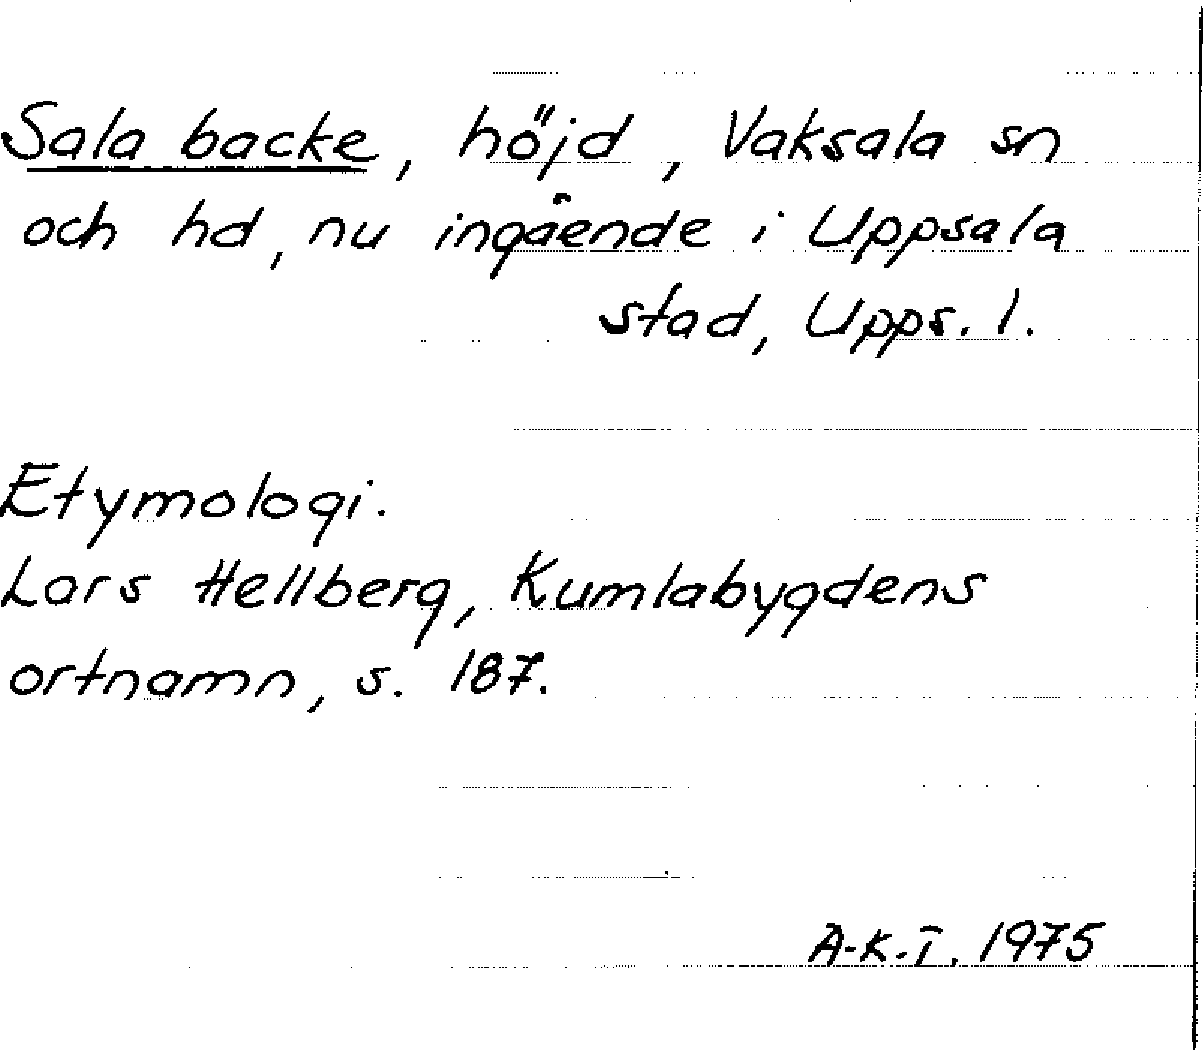 Sala backe, höjd, Vaksala sn
och hd, nu ingående i Uppsala
stad, Upps. l.
Etymologi.
Lars Hellberg, Kumlabygdens
ortnamn, s. 187.
A-K.T. 1975